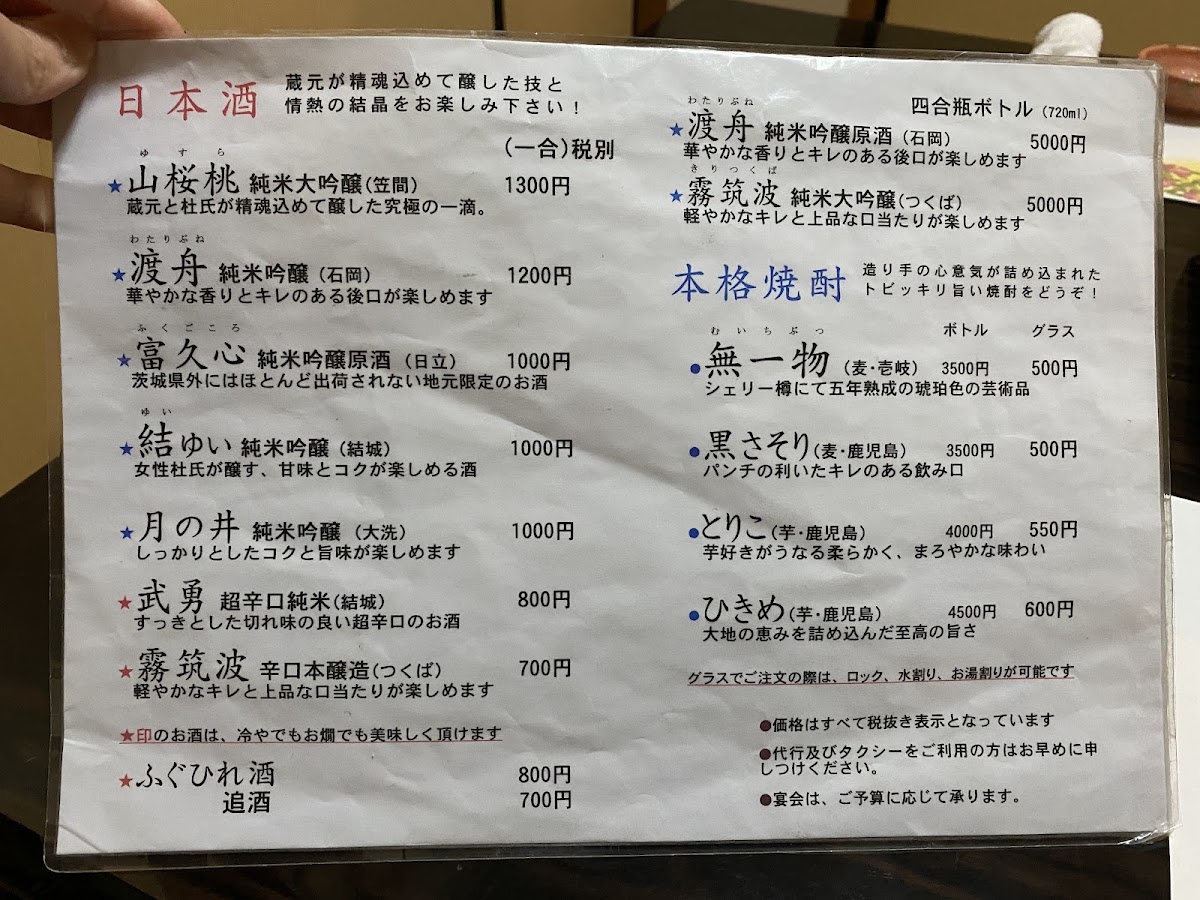 日本酒
蔵元が精魂込めて醸した技と
情熱の結晶をお楽しみ下さい！
(一合)税別
ゆすら
★山桜桃 純米大吟醸(笠間) 1300円
蔵元と杜氏が精魂込めて醸した究極の一滴。
わたりぶね
★渡舟 純米吟醸（石岡） 1200円
華やかな香りとキレのある後口が楽しめます
ふくごころ
★富久心 純米吟醸原酒（日立） 1000円
茨城県外にはほとんど出荷されない地元限定のお酒
ゆい
★結ゆい 純米吟醸（結城） 1000円
女性杜氏が醸す、甘味とコクが楽しめる酒
★月の井 純米吟醸（大洗） 1000円
しっかりとしたコクと旨味が楽しめます
★武勇 超辛口純米(結城) 800円
すっきとした切れ味の良い超辛口のお酒
★霧筑波 辛口本醸造(つくば) 700円
軽やかなキレと上品な口当たりが楽しめます
★印のお酒は、冷やでもお燗でも美味しく頂けます
★ふぐひれ酒 800円
追酒 700円
四合瓶ボトル（720ml）
わたりぶね
★渡舟 純米吟醸原酒（石岡） 5000円
華やかな香りとキレのある後口が楽しめます
きりつくば
★霧筑波 純米大吟醸(つくば) 5000円
軽やかなキレと上品な口当たりが楽しめます
本格焼酎
造り手の心意気が詰め込まれた
トビッキリ旨い焼酎をどうぞ！
ボトル グラス
むいちぶつ
●無一物（麦・壱岐） 3500円 500円
シェリー樽にて五年熟成の琥珀色の芸術品
●黒さそり(麦・鹿児島) 3500円 500円
パンチの利いたキレのある飲み口
●とりこ(芋・鹿児島) 4000円 550円
芋好きがうなる柔らかく、まろやかな味わい
●ひきめ(芋・鹿児島) 4500円 600円
大地の恵みを詰め込んだ至高の旨さ
グラスでご注文の際は、ロック、水割り、お湯割りが可能です
●価格はすべて税抜き表示となっています
●代行及びタクシーをご利用の方はお早めに申
しつけください。
●宴会は、ご予算に応じて承ります。